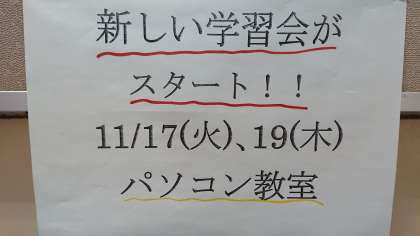 新しい学習会が
スタート！！
11/17(火)、19(木)
パソコン教室